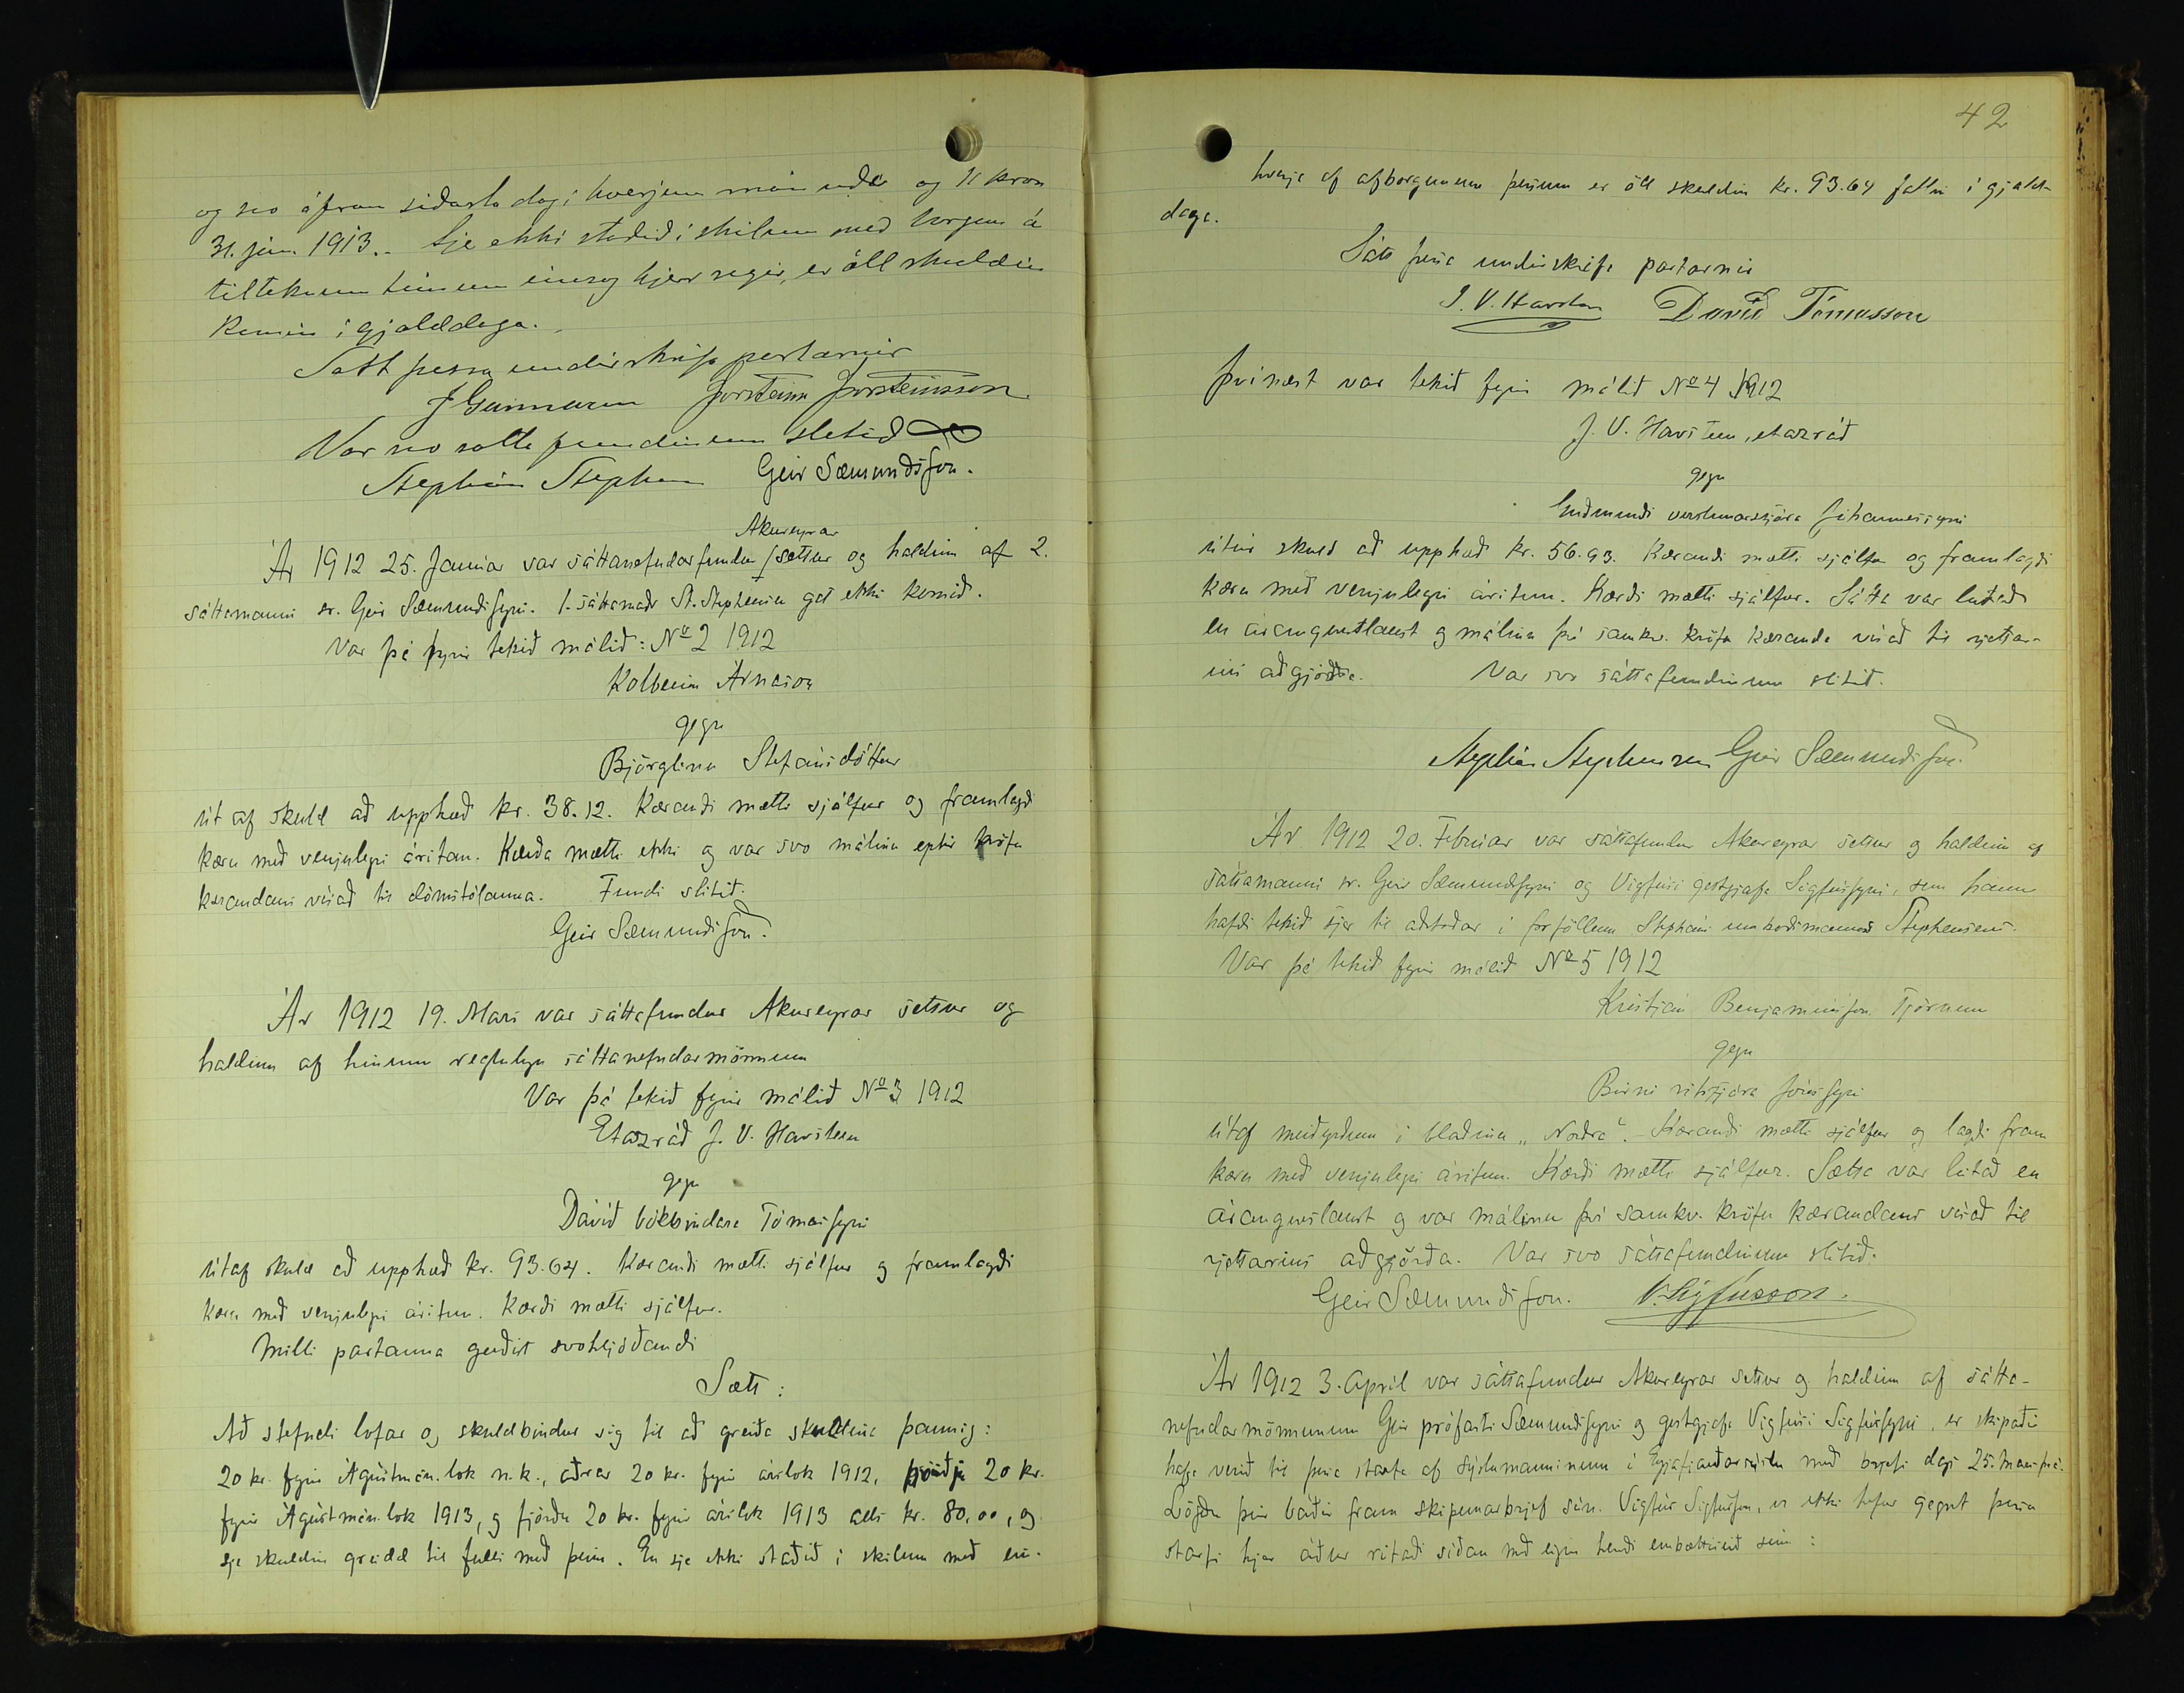 og svo áfram síðasta dag í hverjum mánuði og 11 kron
31. jan. 1913. Sje ekki staðið í skilum með borgun á
tilteknum tímum einsog hjer segir, er öll skuldin
komin í gjalddaga.
Sátt þessa undirskrifa partarnir
J Gunnarsson Þorsteinn Þorsteinsson
Var svo sátta fundinum slitið
Stephán Stephensen Geir Sæmundsson.
Akureyrar
Ár 1912 25. Janúar var sáttanefndarfundur settur og haldinn af 2.
sáttamanni sr. Geir Sæmundssyni. 1. sáttamaðr St. Stephensen gat ekki komið.
Var þá fyrir tekið málið: No 2 1912
Kolbeinn Árnason
gegn
Björglínu Stefánsdóttur
út af skuld að upphæð kr. 38.12. Kærandi mætti sjálfur og framlagði
kæru með venjulegri áritan. Kærða mætti ekki og var svo málinu eptir kröfu
kærandans vísað til dómstólanna. Fundi slitið.
Geir Sæmundsson.
Ár 1912 19. Mars var sáttafundur Akureyrar settur og
haldinn af hinum reglulegu sáttanefndarmönnum
Var þá tekið fyrir málið No 3 1912
Etazráð J. V. Havsteen
gegn
Davíð bókbindara Tómassyni
útaf skuld að upphæð kr. 93.64. Kærandi mætti sjálfur og framlagði
kæru með venjulegri áritun. Kærði mætti sjálfur.
Milli partanna gerðist svohljóðandi
Sætt:
Að stefndi lofar og skuldbindur sig til að greiða skuldina þannig:
20 kr. fyrir Ágústmán. lok n.k., aðrar 20 kr. fyrir árslok 1912, þriðju 20 kr.
fyrir Ágústmán. lok 1913, og fjórðu 20 kr. fyrir árslok 1913 alls kr. 80,00, og
sje skuldin greidd til fulls með þeim. En sje ekki staðið í skilum með ein-
42
hverja af afborgunum þessum er öll skuldin kr. 93.64 fallin í gjald-
daga.
Sátt þessa undirskrifa partarnir
J. V. Havsteen Davið Tómasson
Þvínæst var tekið fyrir málið No 4 1912
J. V. Havsteen, etazráð
gegn
Guðmundi verslunarstjóra Jóhannessyni
útúr skuld að upphæð kr. 56.93. Kærandi mætti sjálfur og framlagði
kæru með venjulegri áritun. Kærði mætti sjálfur. Sátta var leitað
en árangurslaust og málinu því samkv. kröfu kæranda vísað til rjettar-
ins aðgjörða. Var svo sáttafundinum slitið.
Stephán Stephensen Geir Sæmundsson.
Ár 1912 20. Febrúar var sáttafundur Akureyrar settur og haldinn af
sáttamanni sr. Geir Sæmundssyni og Vigfúsi gestgjafa Sigfússyni, sem hann
hafði tekið sjer til aðstoðar í forföllum Stepháns umboðsmanns Stephensens.
Var þá tekið fyrir málið No 5 1912
Kristján Benjamínsson Tjörnum
gegn
Birni ritstjóra Jónssyni
útaf meiðyrðum í blaðinu „Norðra“. Kærandi mætti sjálfur og lagði fram
kæru með venjulegri áritun. Kærði mætti sjálfur. Sætta var leitað en
árangurslaust og var málinu því samkv. kröfu kærandans vísað til
rjettarins aðgjörða. Var svo sáttafundinum slitið.
Geir Sæmundsson. V. Sigfússon.
Ár 1912 3. Apríl var sáttafundur Akureyrar settur og haldinn af sátta-
nefndarmönnunum Geir prófasti Sæmundssyni og gestgjafa Vigfúsi Sigfússyni, er skipaðir
hafa verið til þess starfa af sýslumanninum í Eyjafjarðarsýslu með brjefi dags 25. Mars þ.á.
Lögðu þeir báðir fram skipunarbrjef sín. Vigfús Sigfússon, er ekki hefur gegnt þessu
starfi hjer áður ritaði síðan með eigin hendi embættiseið sinn: